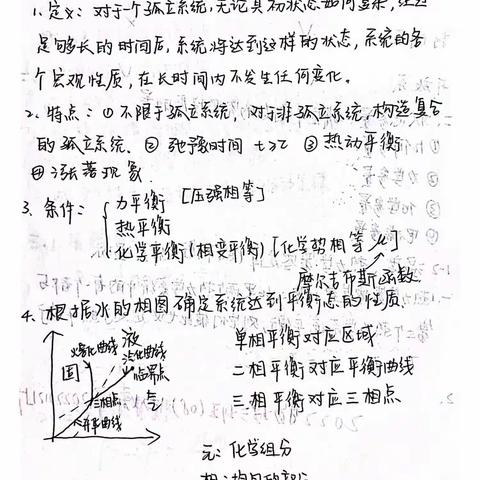 1. 定义: 对于一个孤立系统, 无论其初状态如何复杂, 经过
足够长的时间后, 系统将达到这样的状态, 系统的各
个宏观性质, 在长时间内不发生任何变化。
2. 特点: ① 不限于孤立系统, 对于非孤立系统, 构造复合
的孤立系统、② 弛豫时间 t>τ ③ 热动平衡
④ 涨落现象
3. 条件: 力平衡 [压强相等]
热平衡
化学平衡(相变平衡) [化学势相等 μ]
摩尔吉布斯函数
4. 根据水的相图确定系统达到平衡态的性质.
熔化曲线 液
汽化曲线
固 临界点
三相点 气
升华曲线
单相平衡对应区域
二相平衡对应平衡曲线
三相平衡对应三相点
元: 化学组分
相: 均匀的部分